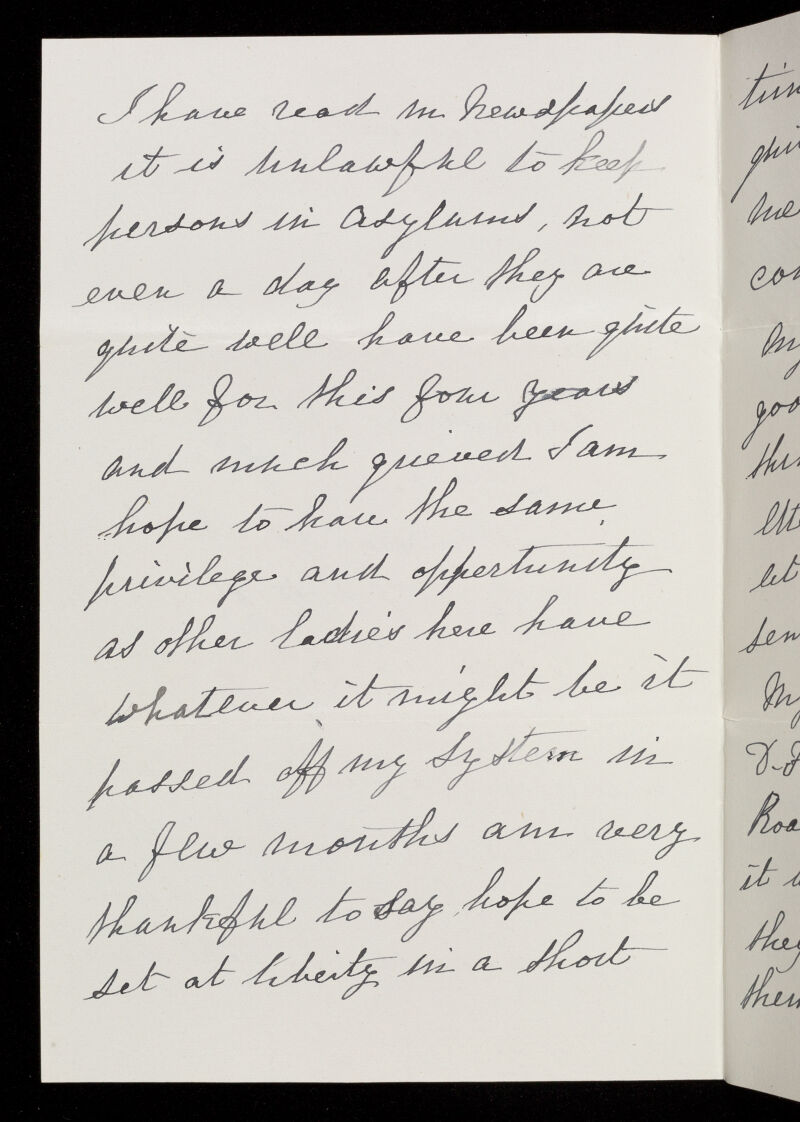 I have read in Newspapers
it is unlawful to keep
persons in asylums, not
even a day after they are
quite well have been quite
well for this four years
and much grieved I am
hope to have the same
privilege and oppertunity
as other ladie's here have
whatever it might be it
passed off my system in
a few months am very
thankful to say hope to be
set at liberty in a short
tim
qui
me
con
My
goo
thin
let
sen
My
D.F
Roa
it w
they
them